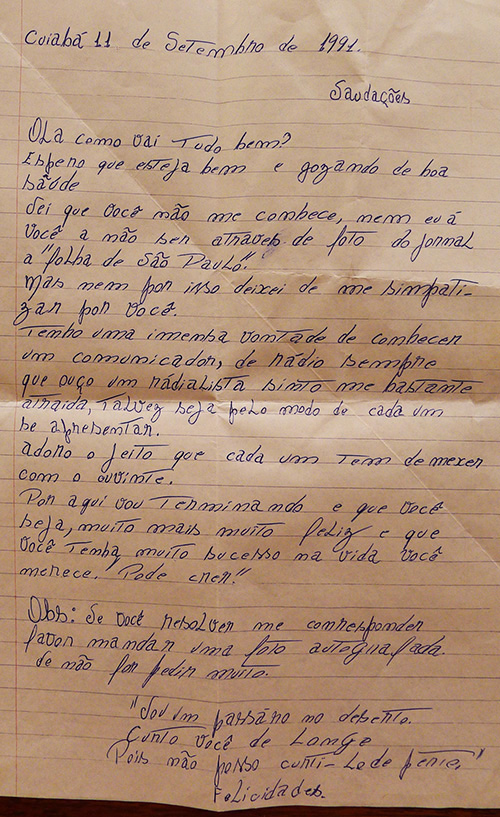 Cuiabá 11 de Setembro de 1991.
Saudações
Ola como vai Tudo bem?
Espero que esteja bem e gozando de boa
saúde
Sei que você não me conhece, nem eu á
você a não ser atraves de foto do jornal
a "folha de São Paulo".
Mas nem por isso deixei de me simpati-
zar por você.
Tenho uma imensa vontade de conhecer
um comunicador, de rádio sempre
que ouço um rádialista sinto me bastante
atraida, Talvez seja pelo modo de cada um
se apresentar.
adoro o jeito que cada um Tem de mexer
com o ouvinte.
Por aqui vou Terminando e que você
seja, muito mais muito feliz e que
você Tenha muito sucesso na vida você
merece. "Pode crer!"
Obs: Se você resolver me corresponder
favor mandar uma foto autografada
se não for pedir muito.
"Sou um passáro no deserto.
Curto você de Longe
Pois não posso curti-lo de perto,"
Felicidades.